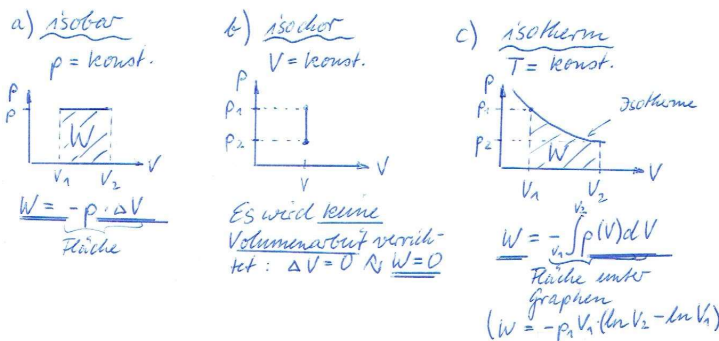 a) isobar
p = konst.
p
p
W
V
V₁ V₂
W = -p · ΔV
Fläche
b) isochor
V = konst.
p
p₁
p₂
V
V
Es wird keine
Volumenarbeit verrich-
tet: ΔV = 0 ⇝ W = 0
c) isotherm
T = konst.
p
p₁
Isotherme
p₂
W
V
V₁ V₂
W = - ∫_{V₁}^{V₂} p(V) dV
Fläche unter
Graphen
(W = -p₁ V₁ · (ln V₂ - ln V₁)